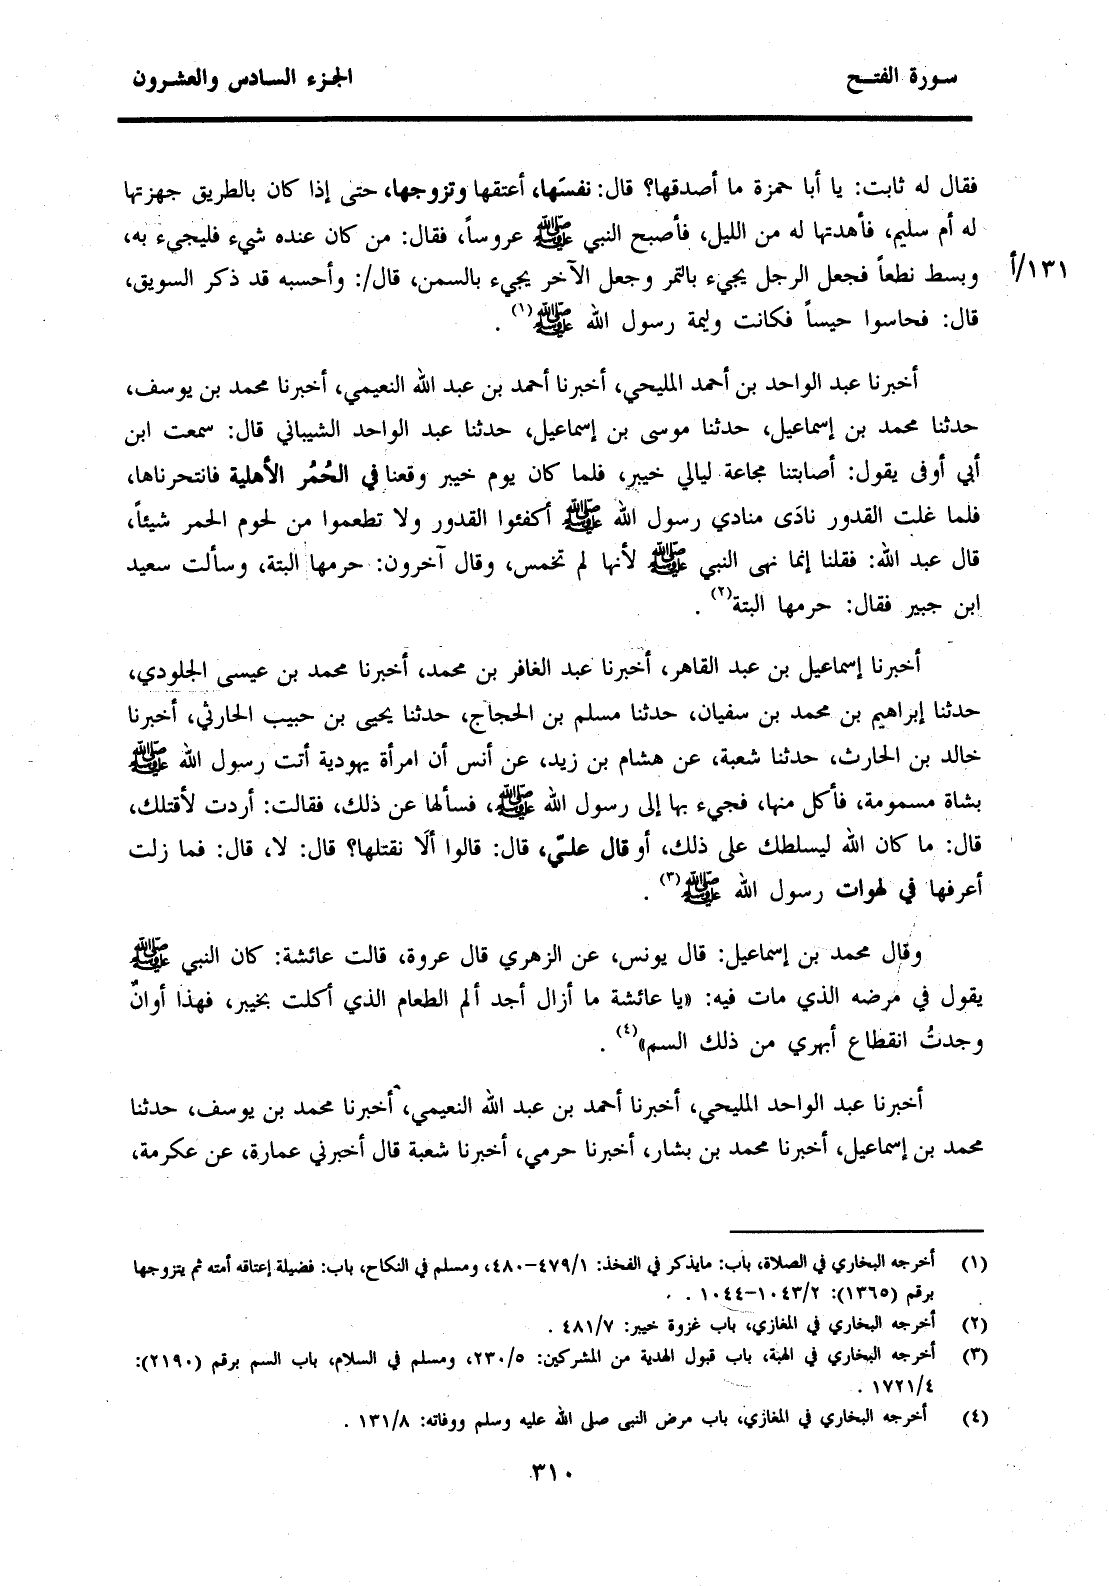 سورة الفتح
الجزء السادس والعشرون
فقال له ثابت: يا أبا حمزة ما أصدقها؟ قال: نفسَها، أعتقها وتزوجها، حتى إذا كان بالطريق جهزتها
له أم سليم، فأهدتها له من الليل، فأصبح النبي ﷺ عروساً، فقال: من كان عنده شيء فليجيء به،
وبسط نطعاً فجعل الرجل يجيء بالتمر وجعل الآخر يجيء بالسمن، قال/: وأحسبه قد ذكر السويق،
١٣١/أ
قال: فحاسوا حيساً فكانت وليمة رسول الله ﷺ(١) .
أخبرنا عبد الواحد بن أحمد المليحي، أخبرنا أحمد بن عبد الله النعيمي، أخبرنا محمد بن يوسف،
حدثنا محمد بن إسماعيل، حدثنا موسى بن إسماعيل، حدثنا عبد الواحد الشيباني قال: سمعت ابن
أبي أوفى يقول: أصابتنا مجاعة ليالي خيبر، فلما كان يوم خيبر وقعنا في الحُمُر الأهلية فانتحرناها،
فلما غلت القدور نادَى منادي رسول الله ﷺ أكفئوا القدور ولا تطعموا من لحوم الحمر شيئاً،
قال عبد الله: فقلنا إنما نهى النبي ﷺ لأنها لم تخمس، وقال آخرون: حرمها البتة، وسألت سعيد
ابن جبير فقال: حرمها البتة(٢) .
أخبرنا إسماعيل بن عبد القاهر، أخبرنا عبد الغافر بن محمد، أخبرنا محمد بن عيسى الجلودي،
حدثنا إبراهيم بن محمد بن سفيان، حدثنا مسلم بن الحجاج، حدثنا يحيى بن حبيب الحارثي، أخبرنا
خالد بن الحارث، حدثنا شعبة، عن هشام بن زيد، عن أنس أن امرأة يهودية أتت رسول الله ﷺ
بشاة مسمومة، فأكل منها، فجيء بها إلى رسول الله ﷺ، فسألها عن ذلك، فقالت: أردت لأقتلك،
قال: ما كان الله ليسلطك على ذلك، أو قال عليّ، قال: قالوا ألَا نقتلها؟ قال: لا، قال: فما زلت
أعرفها في لهوات رسول الله ﷺ(٣) .
وقال محمد بن إسماعيل: قال يونس، عن الزهري قال عروة، قالت عائشة: كان النبي ﷺ
يقول في مرضه الذي مات فيه: «يا عائشة ما أزال أجد ألم الطعام الذي أكلت بخيبر، فهذا أوانٌ
وجدتُ انقطاع أبهري من ذلك السم»(٤) .
أخبرنا عبد الواحد المليحي، أخبرنا أحمد بن عبد الله النعيمي، أخبرنا محمد بن يوسف، حدثنا
محمد بن إسماعيل، أخبرنا محمد بن بشار، أخبرنا حرمي، أخبرنا شعبة قال أخبرني عمارة، عن عكرمة،
(١) أخرجه البخاري في الصلاة، باب: مايذكر في الفخذ: ١/٤٧٩-٤٨٠، ومسلم في النكاح، باب: فضيلة إعتاقه أمته ثم يتزوجها
برقم (١٣٦٥): ٢/١٠٤٣-١٠٤٤ .
(٢) أخرجه البخاري في المغازي، باب غزوة خيبر: ٧/٤٨١ .
(٣) أخرجه البخاري في الهبة، باب قبول الهدية من المشركين: ٥/٢٣٠، ومسلم في السلام، باب السم برقم (٢١٩٠):
٤/١٧٢١ .
(٤) أخرجه البخاري في المغازي، باب مرض النبى صلى الله عليه وسلم ووفاته: ٨/١٣١ .
٣١٠